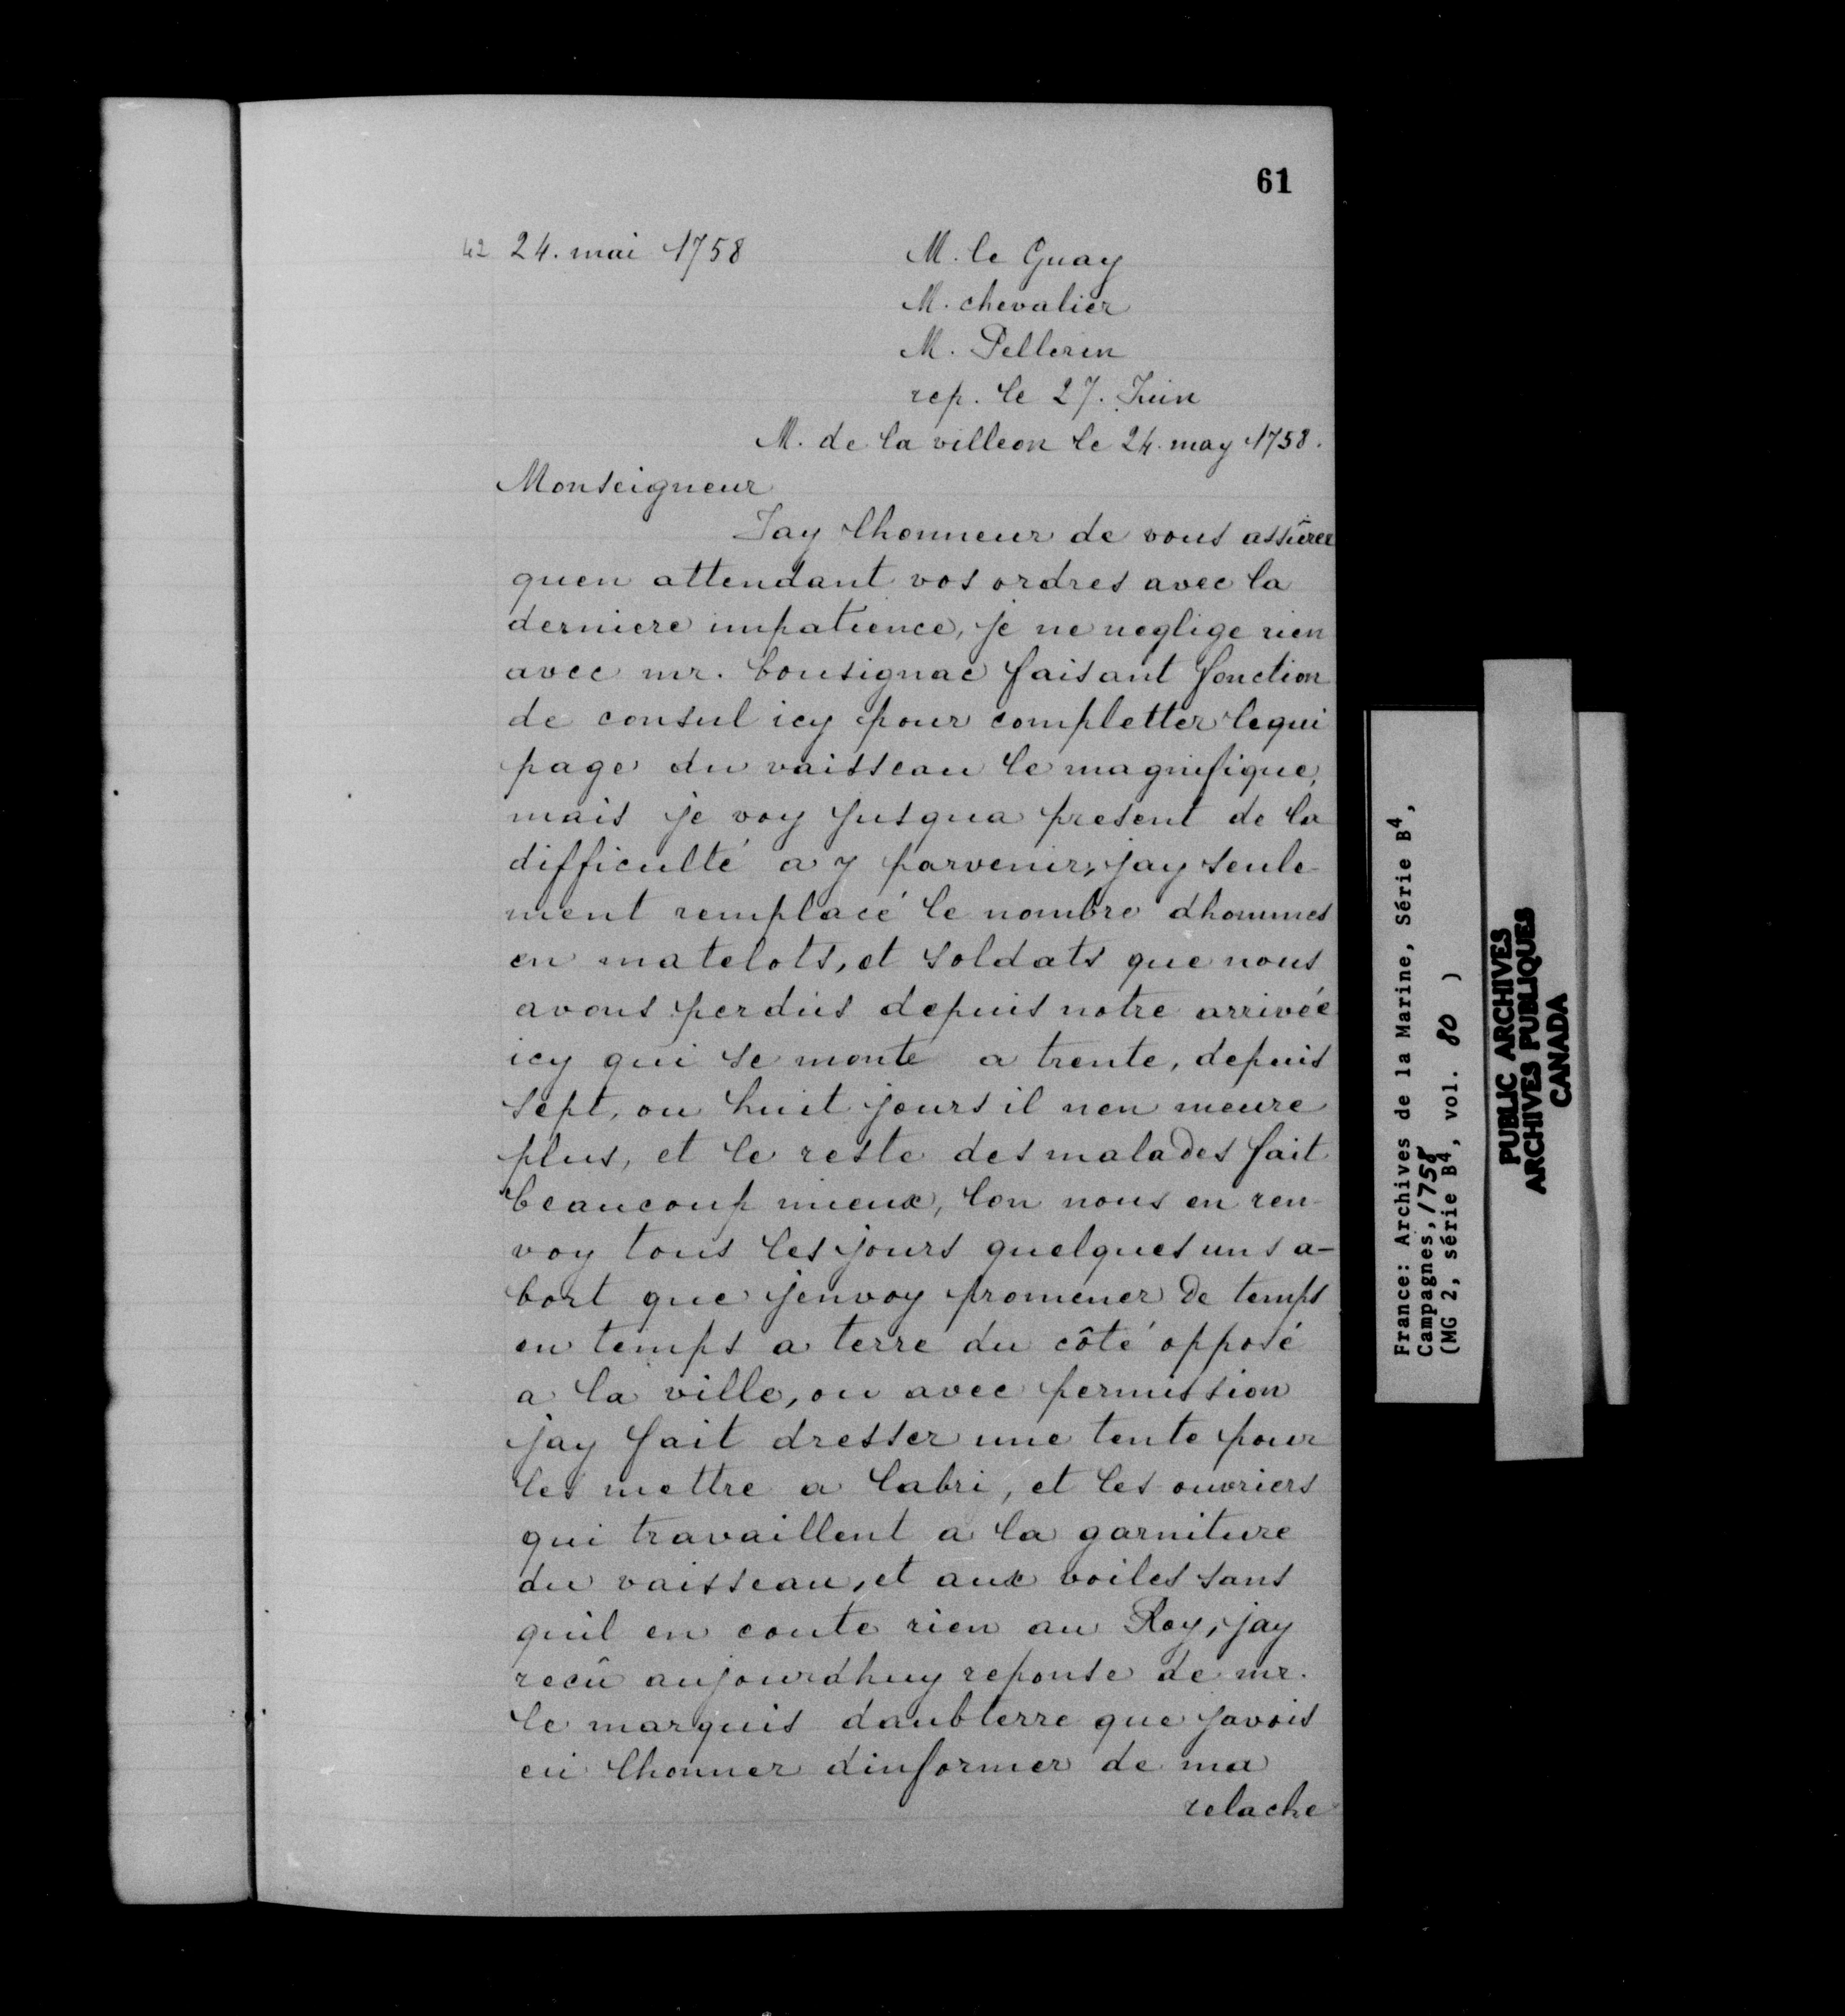 61
42 24. mai 1758
M. le Guay
M. chevalier
M. Pellerin
rep. le 27. Juin
M. de la villeon le 24. may 1758.
Monseigneur
Jay lhonneur de vous assûrer
quen attendant vos ordres avec la
derniere impatience, je ne neglige rien
avec mr. bousignac faisant fonction
de consul icy pour completter lequi
page du vaisseau le magnifique,
mais je voy jusqua present de la
difficulté a y parvenir, jay seule-
ment remplacé le nombre dhommes
en matelots, et soldats que nous
avons perdus depuis notre arrivée
icy qui se monte a trente, depuis
sept, ou huit jours il nen meure
plus, et le reste des malades fait
beaucoup mieux, lon nous en ren-
voy tous les jours quelques uns a-
bort que jenvoy promener de temps
en temps a terre du côté opposé
a la ville, ou avec permission
jay fait dresser une tente pour
les mettre a labri, et les ouvriers
qui travaillent a la garniture
du vaisseau, et aux voiles sans
quil en coute rien au Roy, jay
recû aujourdhuy reponse de mr.
le marquis daubterre que javois
eu lhonner dinformer de ma
relache
France: Archives de la Marine, Série B4,
Campagnes, 1758
(MG 2, série B4, vol. 80 )
PUBLIC ARCHIVES
ARCHIVES PUBLIQUES
CANADA